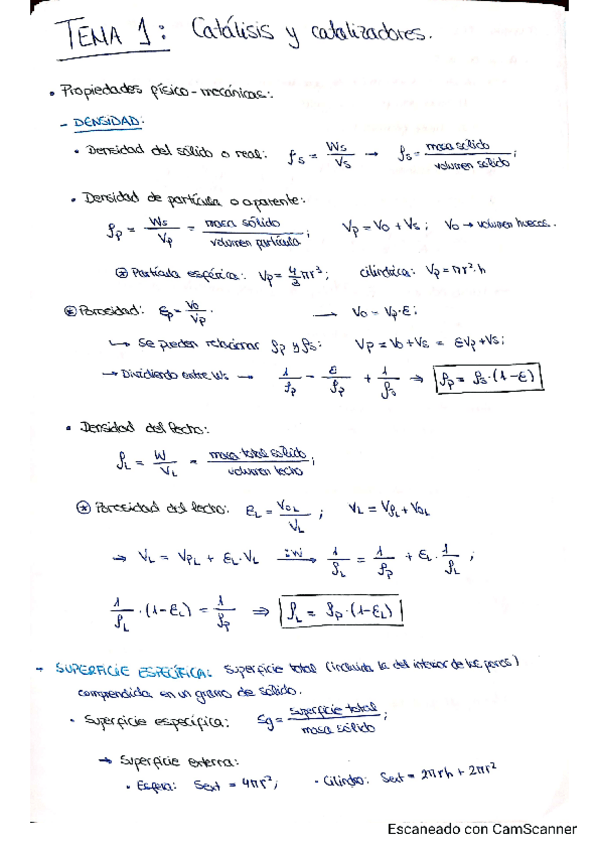 TEMA 1: Catálisis y catalizadores.
• Propiedades físico-mecánicas:
- DENSIDAD:
• Densidad del sólido o real: ρs = Ws/Vs → ρs = masa sólido/volumen sólido;
• Densidad de partícula o aparente:
ρp = Ws/Vp = masa sólido/volumen partícula; Vp = Vo + Vs; Vo → volumen huecos.
⊛ Partícula esférica: Vp = 4/3 πr³; cilíndrica: Vp = πr²·h
⊛ Porosidad: εp = Vo/Vp. → Vo = Vp·ε;
↳ Se pueden relacionar ρp y ρs: Vp = Vo + Vs = εVp + Vs;
→ Dividiendo entre Ws → 1/ρp = ε/ρp + 1/ρs ⇒ ρp = ρs·(1-ε)
• Densidad del lecho:
ρL = W/VL = masa total sólido/volumen lecho;
⊛ Porosidad del lecho: εL = VoL/VL; VL = VρL + VoL
→ VL = VpL + εL·VL :W→ 1/ρL = 1/ρp + εL·1/ρL;
1/ρL·(1-εL) = 1/ρp ⇒ ρL = ρp·(1-εL)
→ SUPERFICIE ESPECÍFICA: Superficie total (incluida la del interior de los poros)
comprendida en un gramo de sólido.
• Superficie específica: Sg = superficie total/masa sólido;
→ Superficie externa:
• Esfera: Sext = 4πr²; • Cilindro: Sext = 2πrh + 2πr²
Escaneado con CamScanner